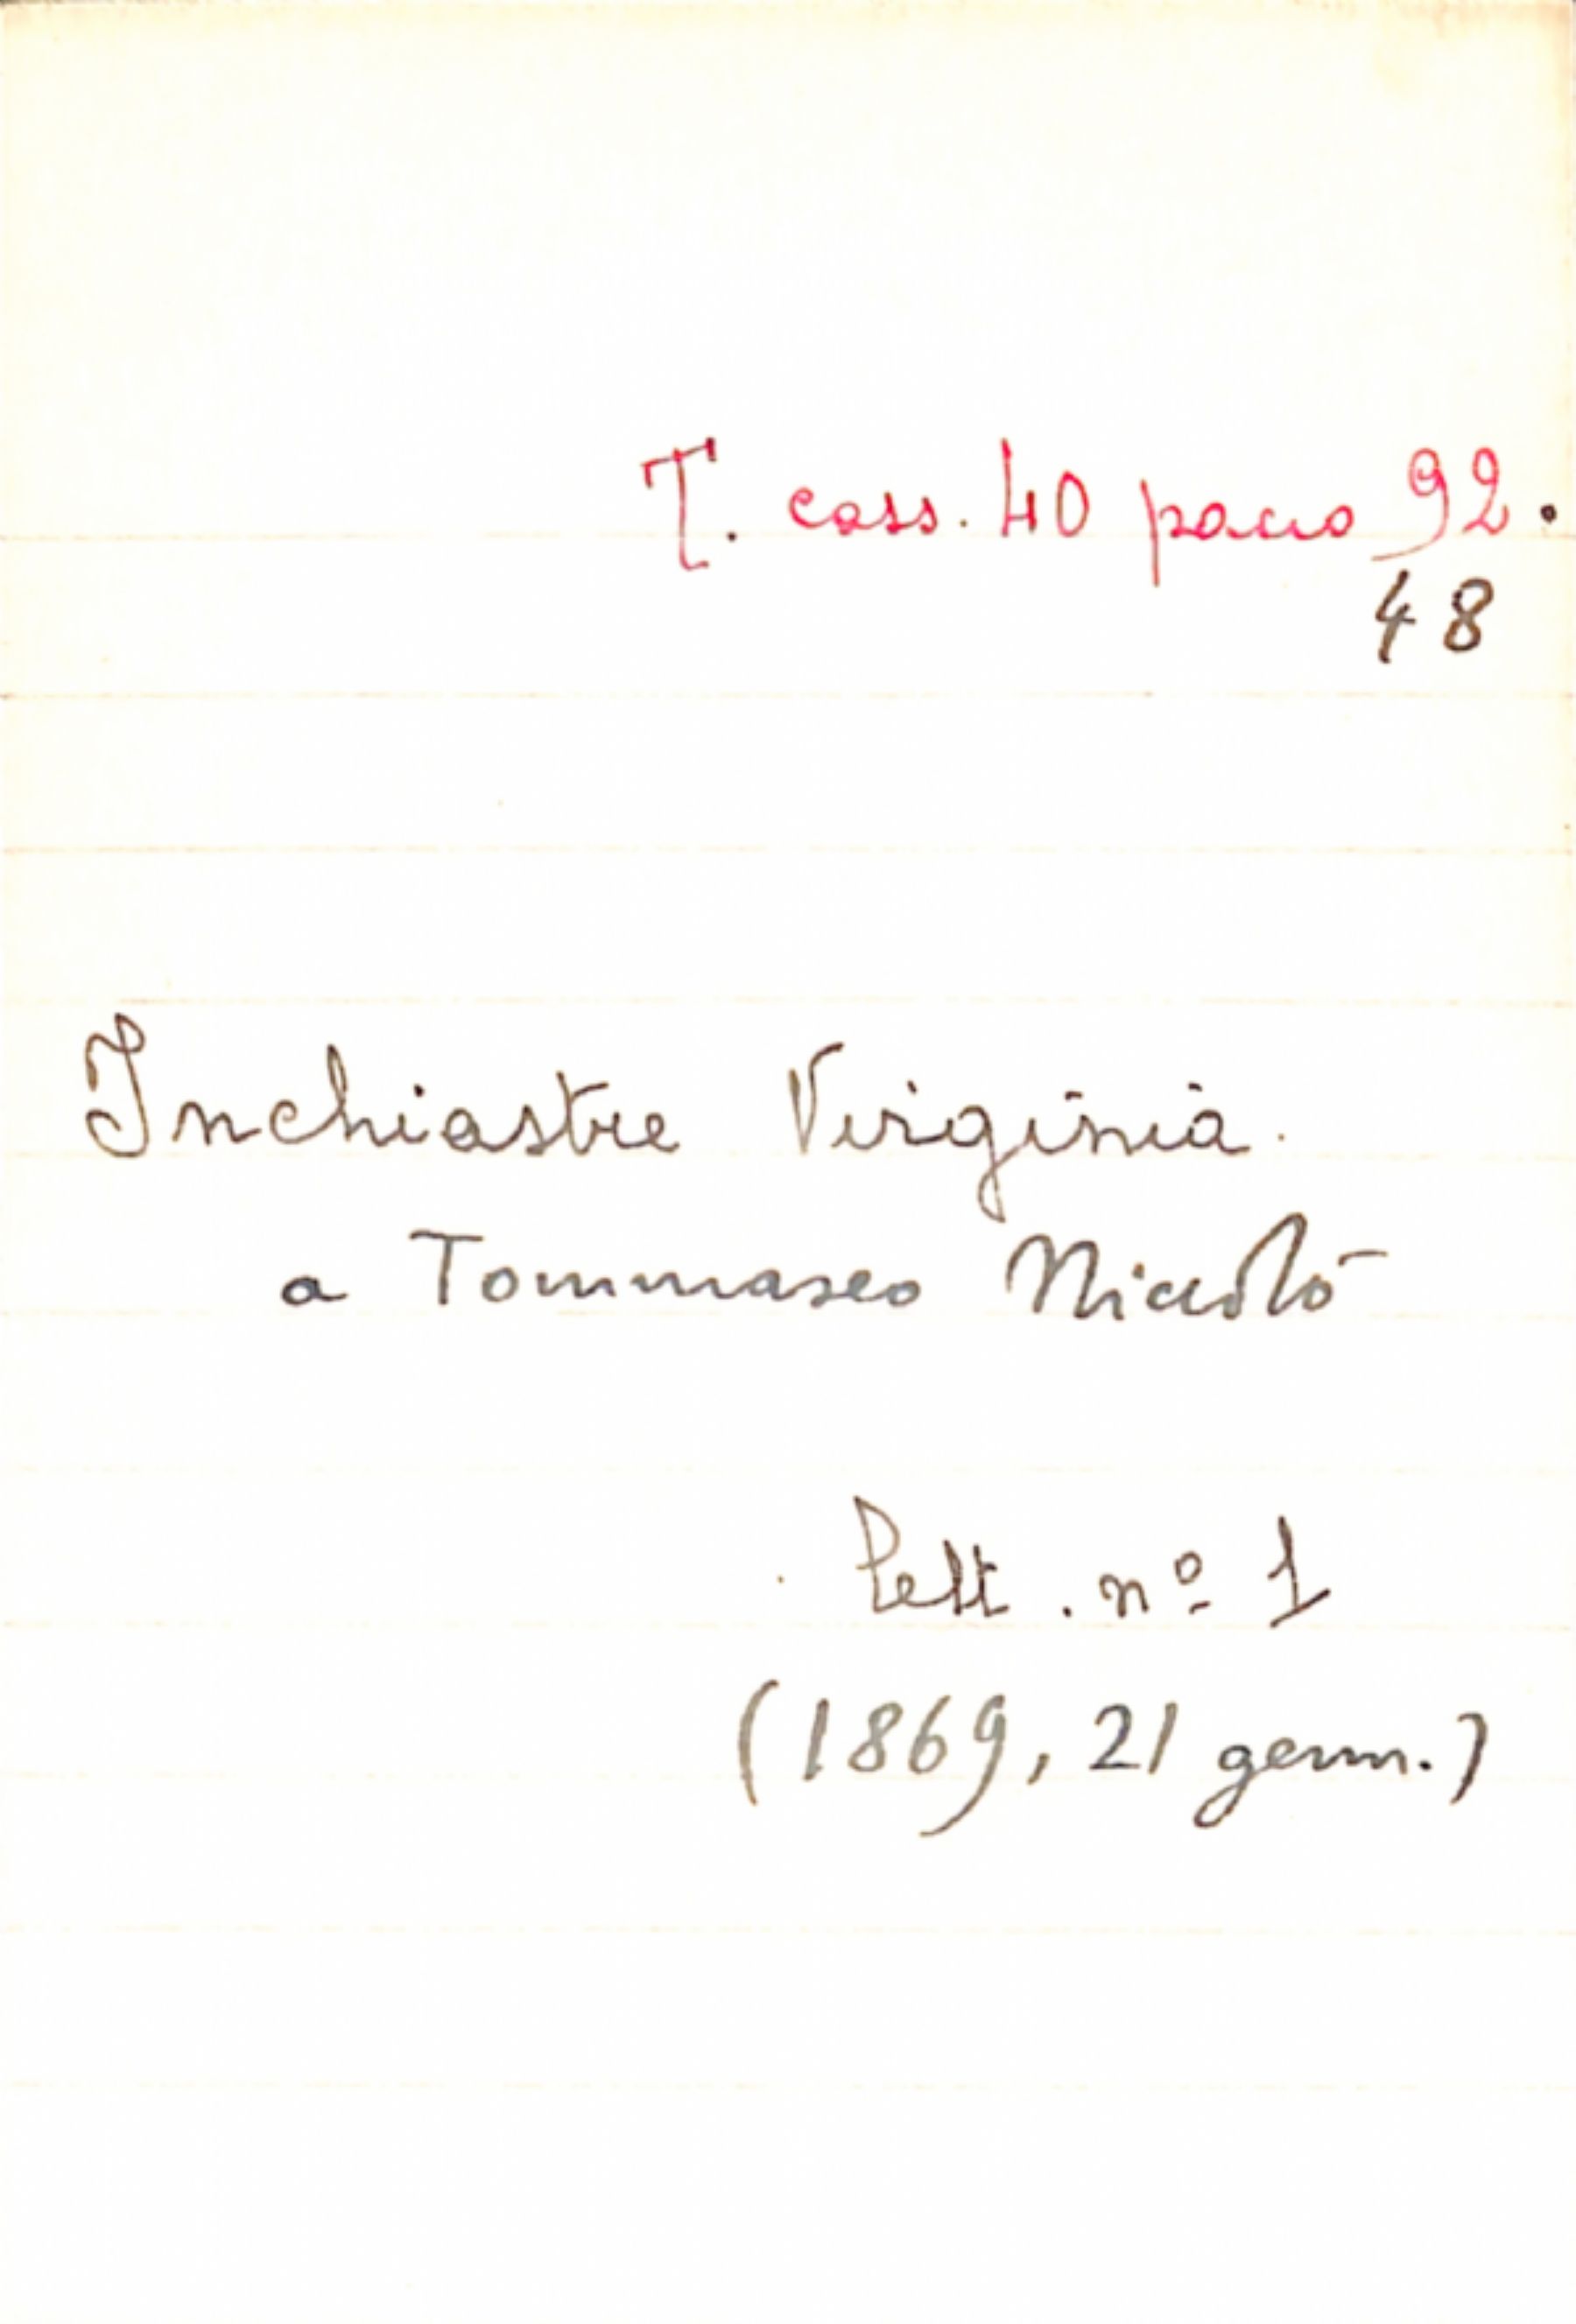 T. cass. 40 pacco 92.
48
Inchiastre Virginia.
a Tommaseo Niccolò
Lett. nº 1
(1869, 21 genn.)